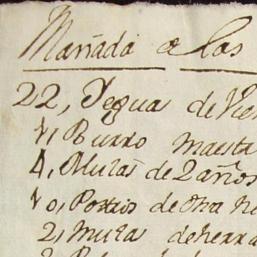 Mañada de las
22, Yegua de Vien
1, Burro maest
4, Mulas de 2 años
10, Potros de otra he
2, Mula de herra